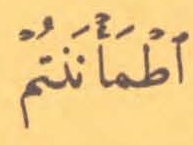 ٱطْمَأْنَنتُمْ